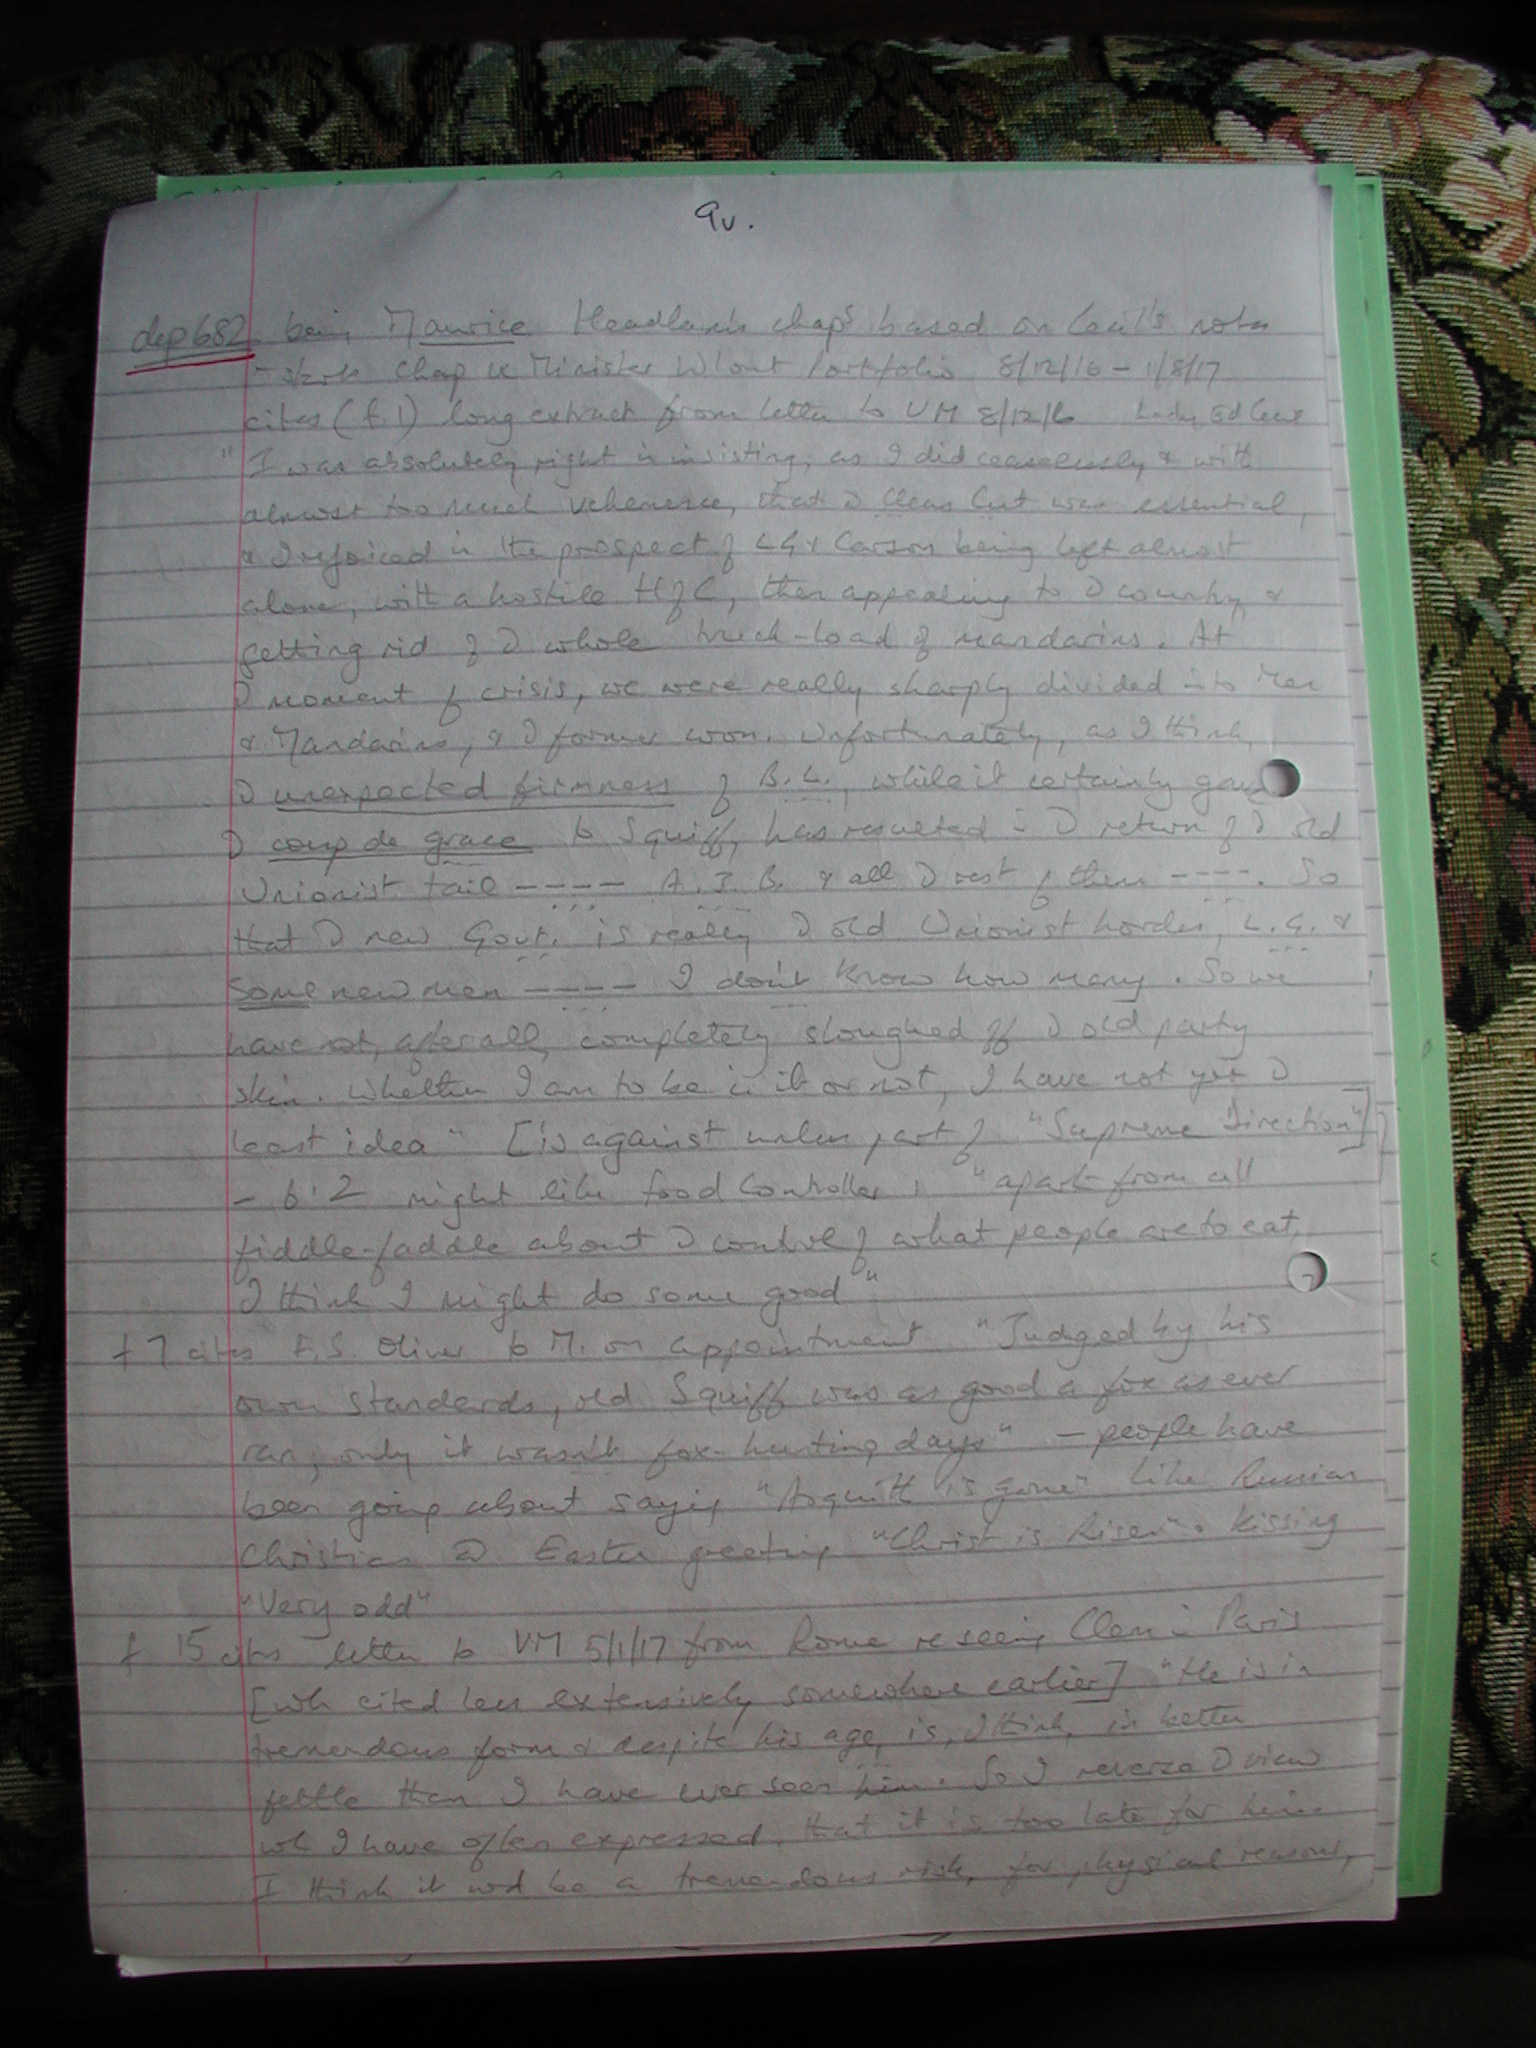 9v.
dep 682 being Maurice Headlam's chaps based on Cecil's notes
- starts Chap ix Minister W'out Portfolio 8/12/16 - 1/8/17
cites (f.1) long extract from letter to VM 8/12/16 Lady Ed Cecil
"I was absolutely right in insisting, as I did ceaselessly & with
almost too much vehemence, that a clean cut was essential,
& I rejoiced in the prospect of LG & Carson being left almost
alone, with a hostile H of C, then appealing to country &
getting rid of whole truck-load of mandarins. At
moment of crisis, we were really sharply divided into Men
& Mandarins, & former won. Unfortunately, as I think,
unexpected firmness of B.L., while it certainly gave
coup de grace to Squiff, has resulted in return of old
Unionist tail ---- A.J.B. & all rest of them ----. So
that new Govt. is really old Unionist horde, L.G. &
some new men ---- I don't know how many. So we
have not, after all, completely sloughed off old party
skin. Whether I am to be in it or not, I have not yet
least idea" [is against unless part of "Supreme Direction"]
- b. 2 might like food controller: "apart from all
fiddle-faddle about control of what people are to eat,
I think I might do some good"
f 7 cites F.S. Oliver to M. on appointment "Judged by his
own standards, old Squiff was as good a fox as ever
ran, only it wasn't fox-hunting days" - people have
been going about saying "Asquith is gone" like Russian
Christian Easter greeting "Christ is Risen" & kissing
"Very odd"
f 15 cites letter to VM 5/1/17 from Rome re seeing Clem in Paris
[wh cited less extensively somewhere earlier] "He is in
tremendous form & despite his age, is, I think, in better
fettle than I have ever seen him. So I reverse view
wh I have often expressed, that it is too late for him.
I think it wd be a tremendous risk, for physical reasons,